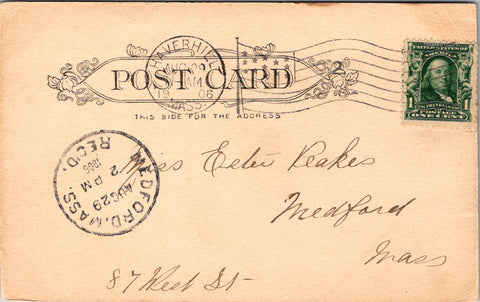 HAVERHILL
AUG 29
AM
1906
MASS.
2
POST CARD
THIS SIDE FOR THE ADDRESS
UNITED STATES OF AMERICA
FRANKLIN
1 POSTAGE 1
ONE CENT
MEDFORD, MASS.
AUG 29
2 PM
1906
REC'D.
Miss Ester Peakes
Medford
Mass
87 West St